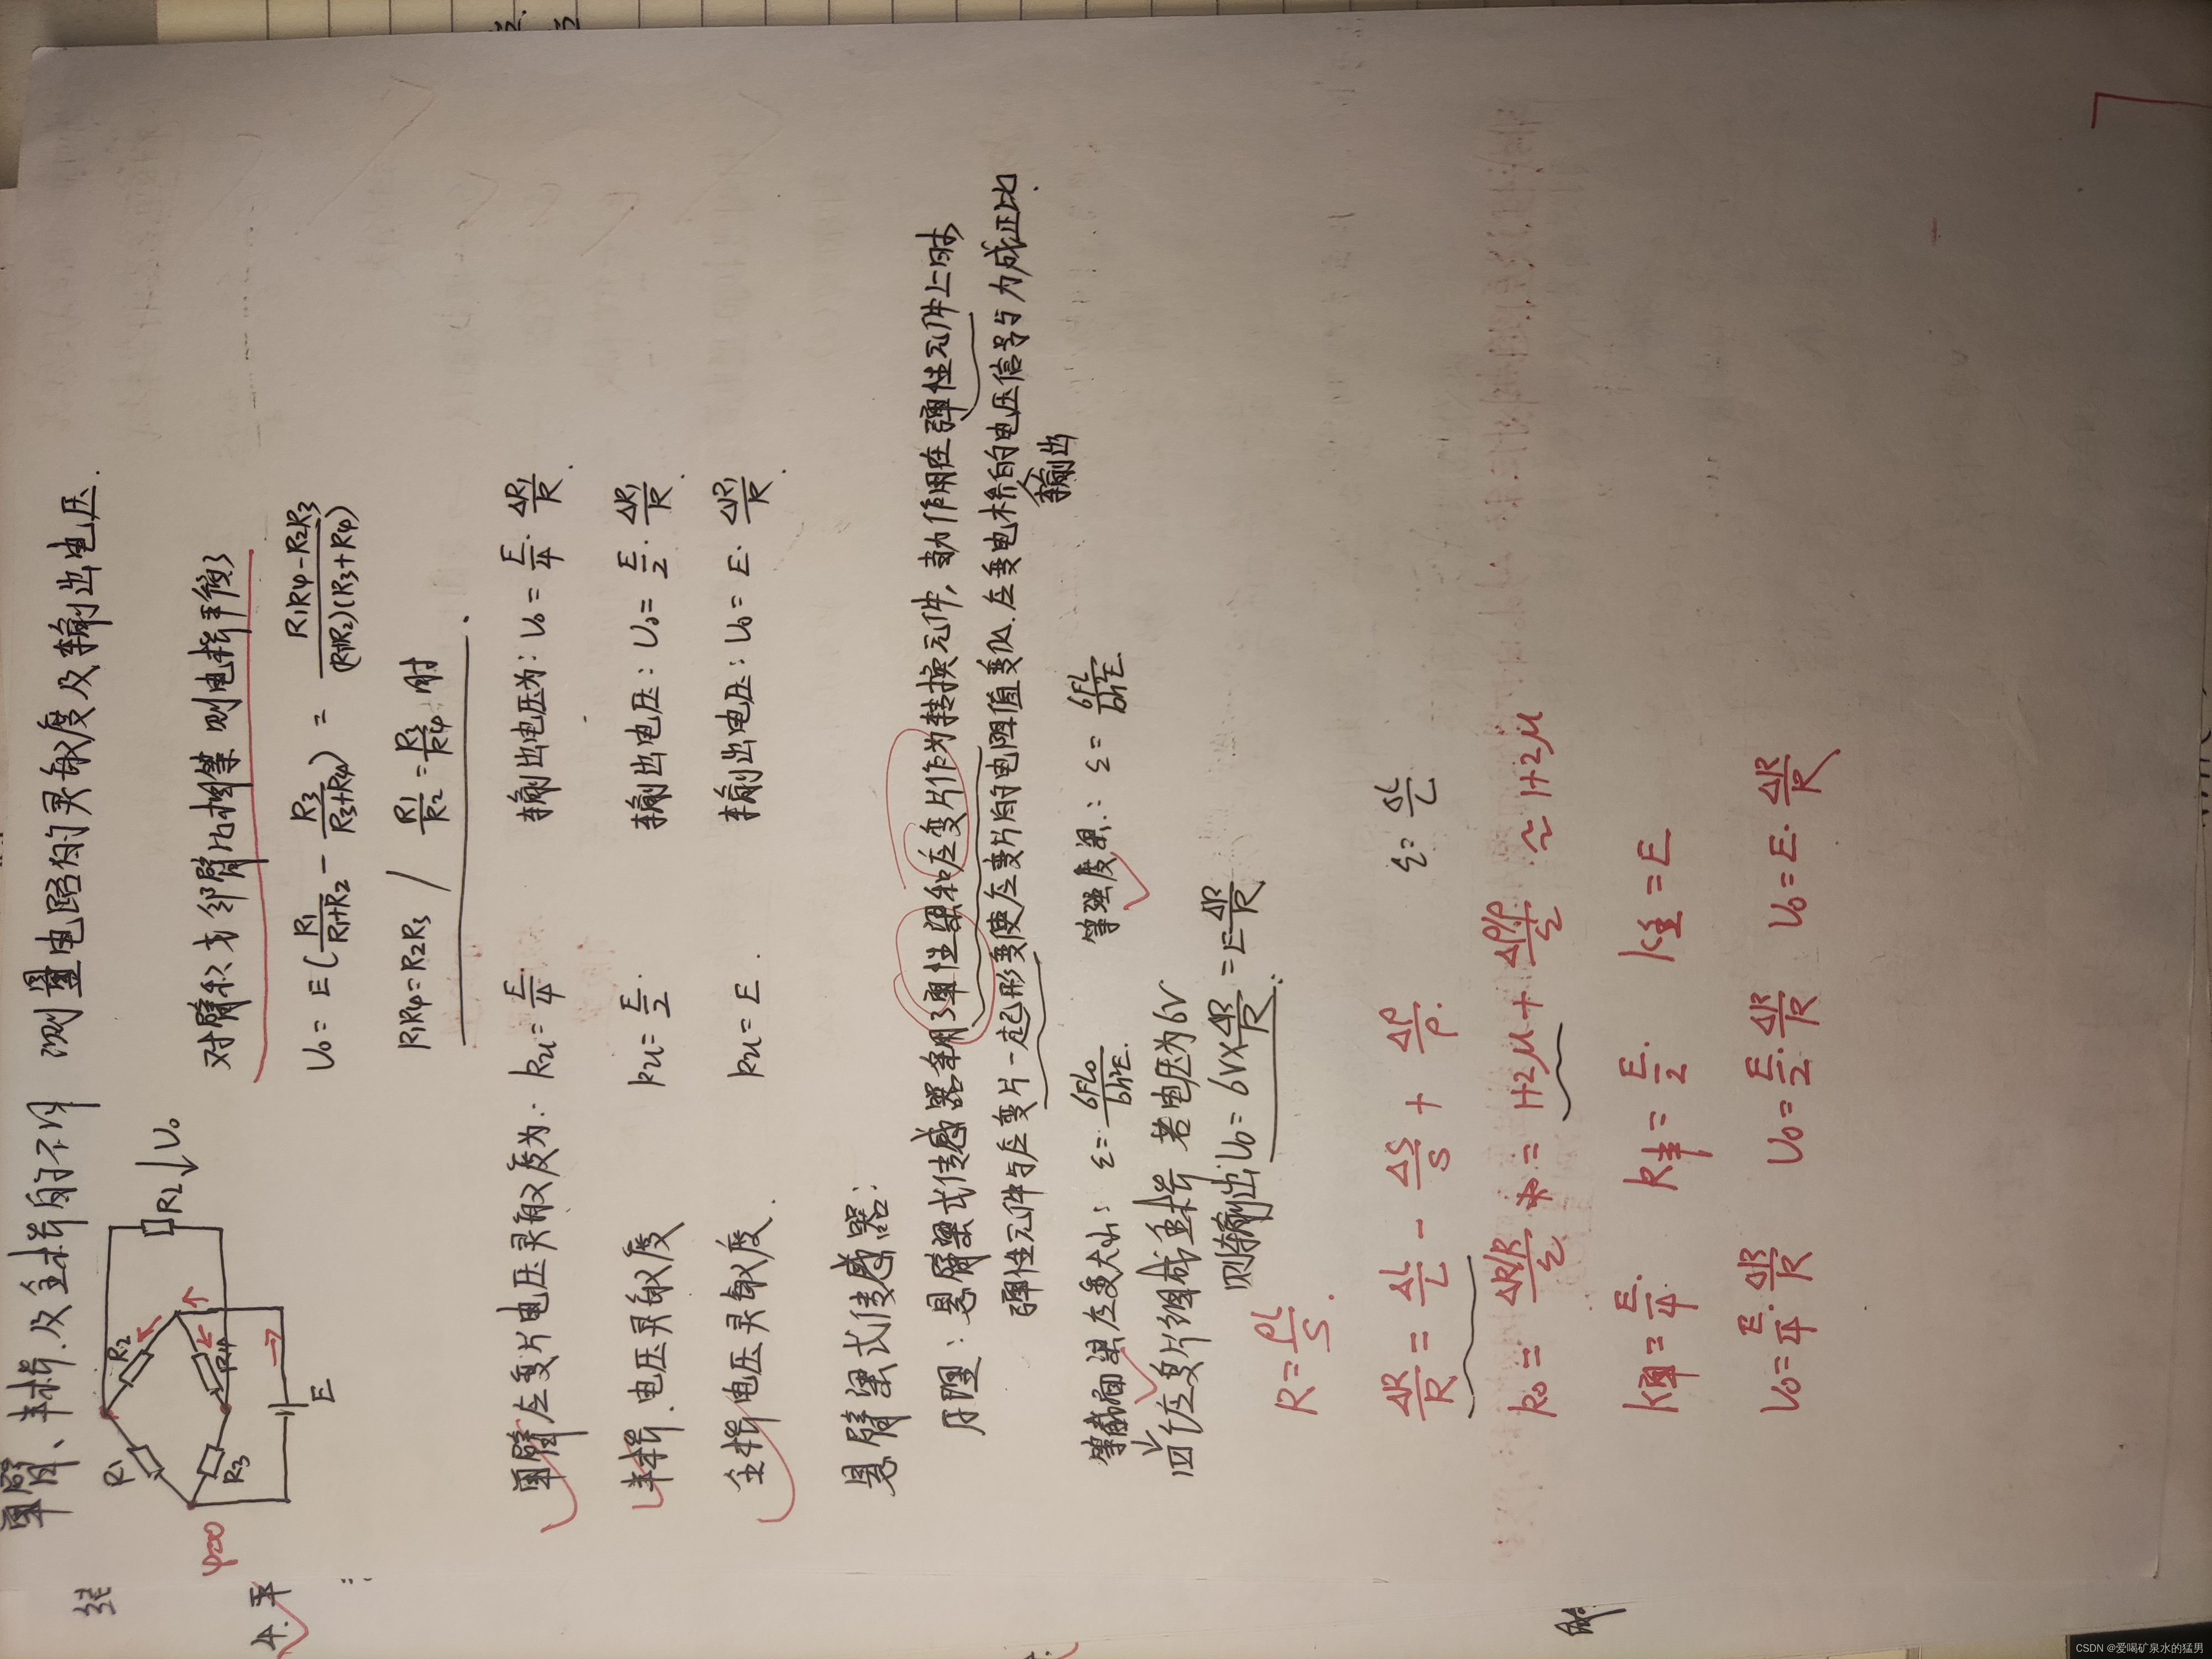 单臂、半桥及全桥的不同 测量电路的灵敏度及输出电压.
R1 R2 R3 R4 RL U₀ E
φ=0
对臂积或邻臂比相等 则电桥平衡
U₀ = E(R1/(R1+R2) - R3/(R3+R4)) = (R1R4-R2R3)/((R1+R2)(R3+R4))
R1R4=R2R3 / R1/R2 = R3/R4 时
4. 平
单臂应变片电压灵敏度为: ku = E/4. 输出电压为: U₀ = E/4 · ΔR1/R .
半桥 电压灵敏度 ku = E/2 . 输出电压: U₀ = E/2 · ΔR1/R .
全桥 电压灵敏度. ku = E . 输出电压: U₀ = E · ΔR1/R .
悬臂梁式传感器:
原理: 悬臂梁式传感器采用了弹性梁和应变片作为转换元件, 当力作用在弹性元件上时
弹性元件与应变片一起形变使应变片的电阻值变化. 应变电桥的输出电压信号与力成正比.
等截面梁应变大小: ε = 6FL₀/bh²E. 等强度梁: ε = 6FL/bh²E
四个应变片组成全桥 若电压为6V
则输出U₀ = 6V×ΔR/R = E ΔR/R
R = ρL/S .
ΔR/R = ΔL/L - ΔS/S + Δρ/ρ . ε = ΔL/L
k₀ = (ΔR/R)/ε = 1+2μ + (Δρ/ρ)/ε ≈ 1+2μ
k单 = E/4 . k半 = E/2 . k全 = E
U₀ = E/4 · ΔR/R U₀ = E/2 · ΔR/R U₀ = E · ΔR/R
CSDN @爱喝矿泉水的猛男